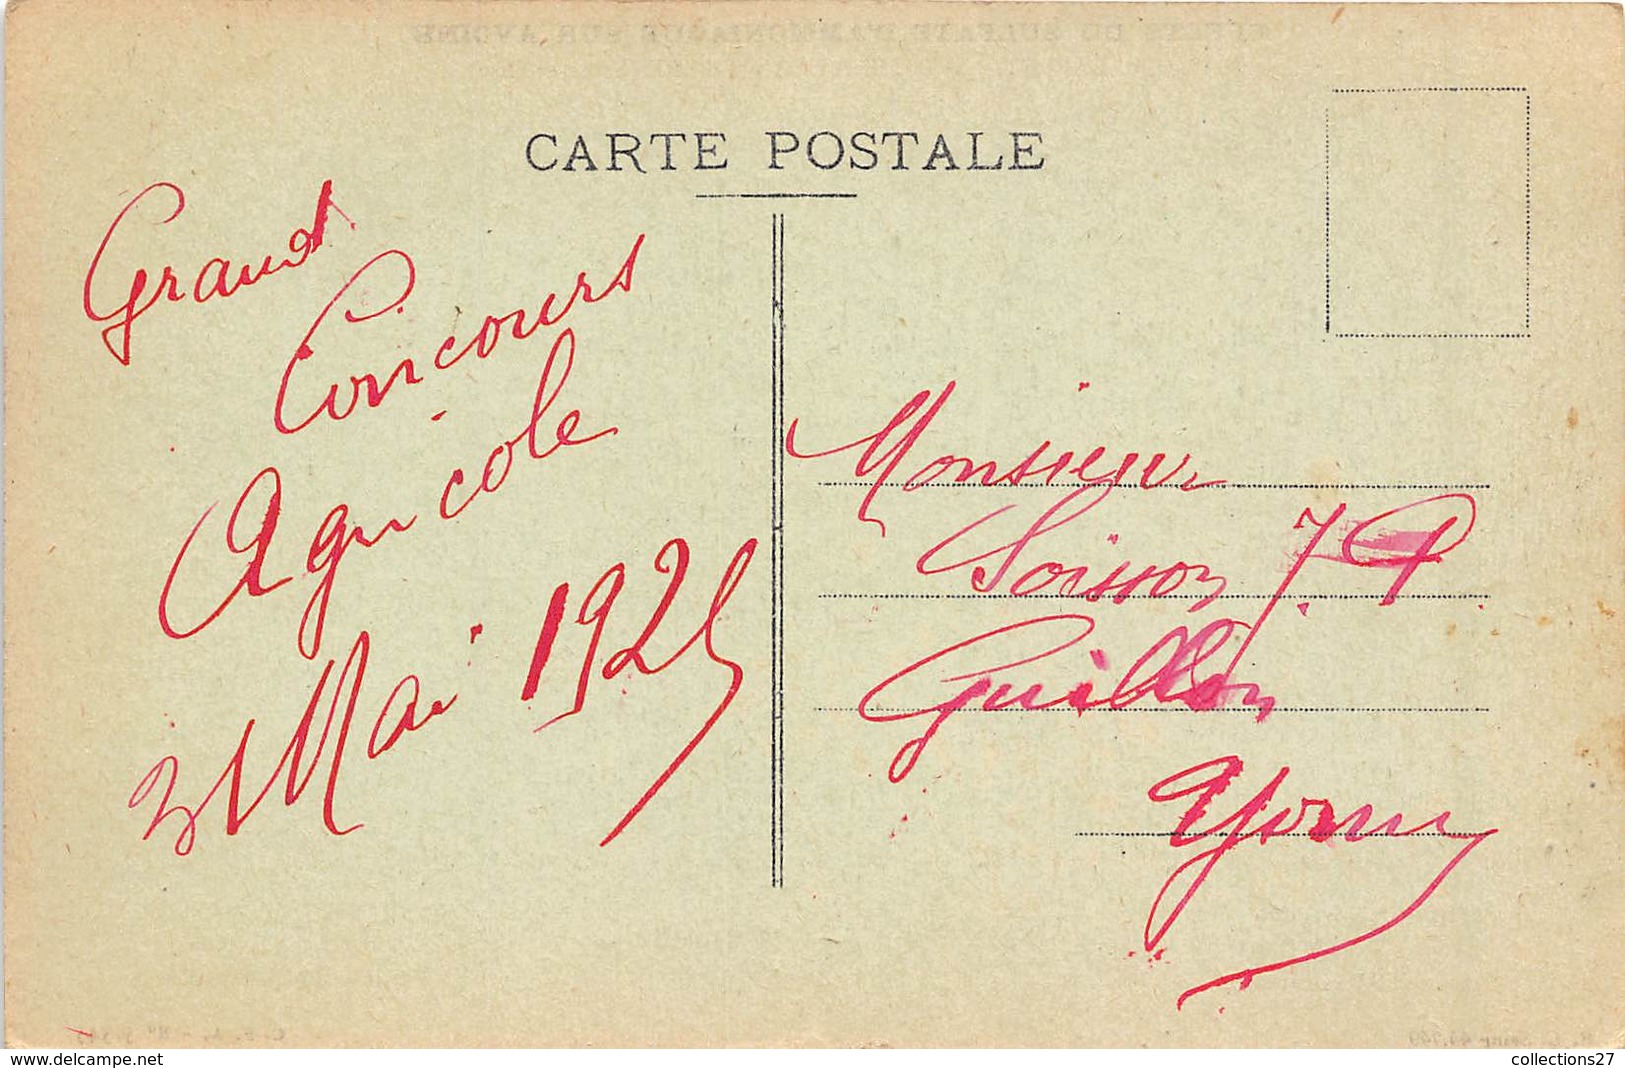 CARTE POSTALE
Grand
Concours
Agricole
31 Mai 1925
Monsieur
Soisson J. P.
Guillon
Yonne
delcampe.net
collections27